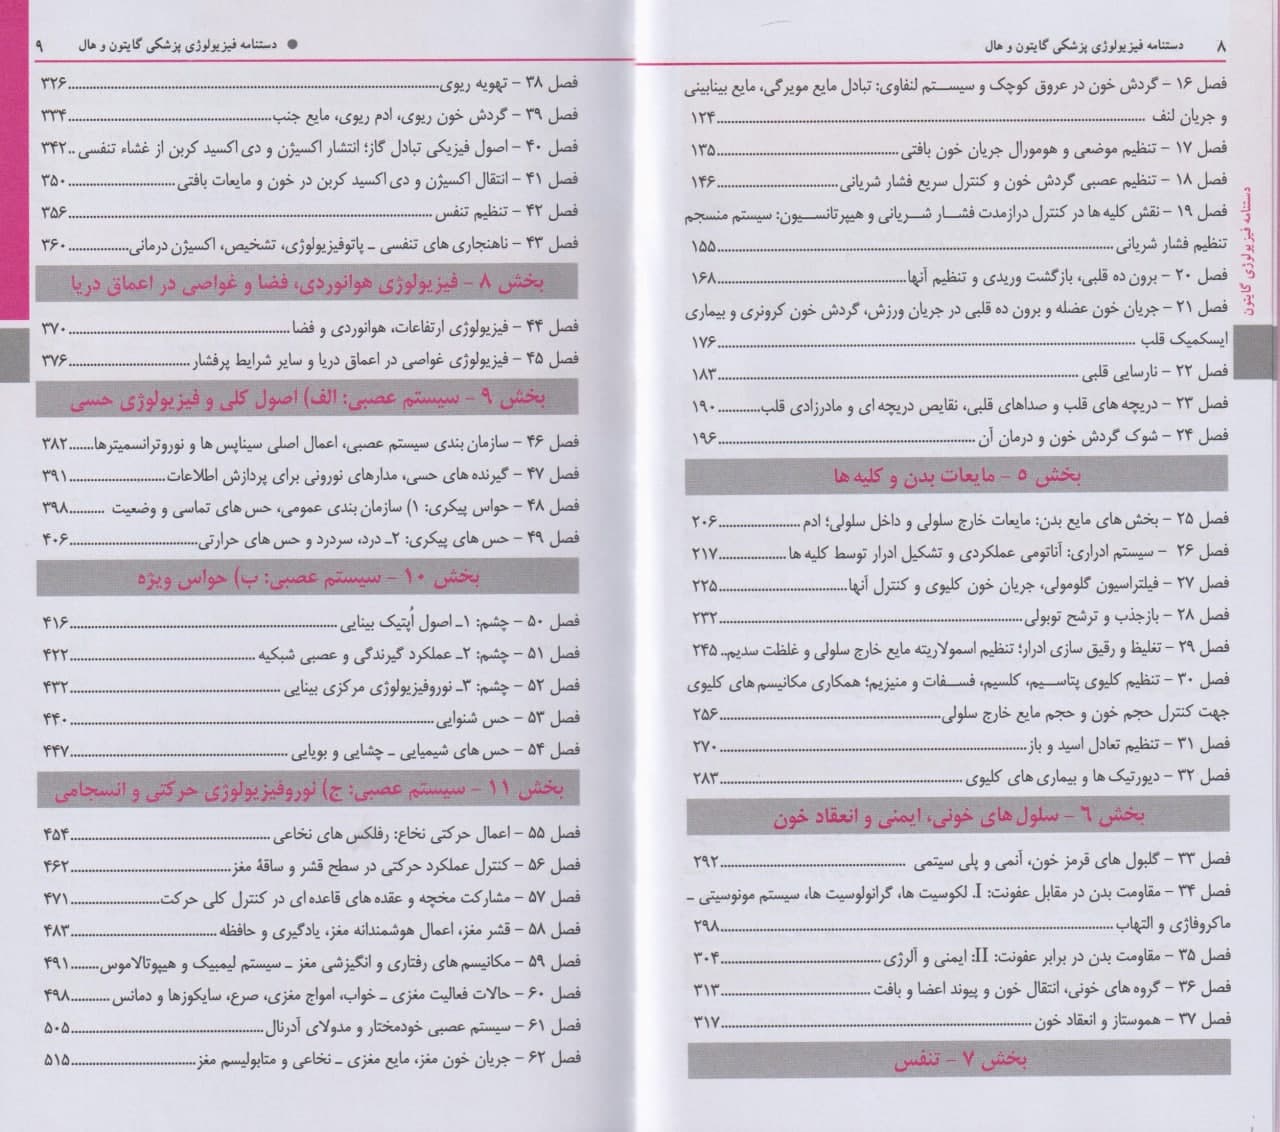 ۸ دستنامه فیزیولوژی پزشکی گایتون و هال
فصل ۱۶ - گردش خون در عروق کوچک و سیستم لنفاوی: تبادل مایع مویرگی، مایع بینابینی
و جریان لنف ...............۱۲۴
فصل ۱۷ - تنظیم موضعی و هومورال جریان خون بافتی...............۱۳۵
فصل ۱۸ - تنظیم عصبی گردش خون و کنترل سریع فشار شریانی...............۱۴۶
فصل ۱۹ - نقش کلیه ها در کنترل درازمدت فشار شریانی و هیپرتانسیون: سیستم منسجم
تنظیم فشار شریانی...............۱۵۵
فصل ۲۰ - برون ده قلبی، بازگشت وریدی و تنظیم آنها...............۱۶۸
فصل ۲۱ - جریان خون عضله و برون ده قلبی در جریان ورزش، گردش خون کرونری و بیماری
ایسکمیک قلب ...............۱۷۶
فصل ۲۲ - نارسایی قلبی...............۱۸۳
فصل ۲۳ - دریچه های قلب و صداهای قلبی، نقایص دریچه ای و مادرزادی قلب............۱۹۰
فصل ۲۴ - شوک گردش خون و درمان آن ...............۱۹۶
بخش ۵ - مایعات بدن و کلیه ها
فصل ۲۵ - بخش های مایع بدن: مایعات خارج سلولی و داخل سلولی؛ ادم ...............۲۰۶
فصل ۲۶ - سیستم ادراری: آناتومی عملکردی و تشکیل ادرار توسط کلیه ها...............۲۱۷
فصل ۲۷ - فیلتراسیون گلومولی، جریان خون کلیوی و کنترل آنها...............۲۲۵
فصل ۲۸ - بازجذب و ترشح توبولی...............۲۳۲
فصل ۲۹ - تغلیظ و رقیق سازی ادرار؛ تنظیم اسمولاریته مایع خارج سلولی و غلظت سدیم.. ۲۴۵
فصل ۳۰ - تنظیم کلیوی پتاسیم، کلسیم، فسفات و منیزیم؛ همکاری مکانیسم های کلیوی
جهت کنترل حجم خون و حجم مایع خارج سلولی...............۲۵۶
فصل ۳۱ - تنظیم تعادل اسید و باز...............۲۷۰
فصل ۳۲ - دیورتیک ها و بیماری های کلیوی ...............۲۸۳
بخش ۶ - سلول های خونی، ایمنی و انعقاد خون
فصل ۳۳ - گلبول های قرمز خون، آنمی و پلی سیتمی ...............۲۹۲
فصل ۳۴ - مقاومت بدن در مقابل عفونت: I. لکوسیت ها، گرانولوسیت ها، سیستم مونوسیتی ـ
ماکروفاژی و التهاب...............۲۹۸
فصل ۳۵ - مقاومت بدن در برابر عفونت: II: ایمنی و آلرژی...............۳۰۴
فصل ۳۶ - گروه های خونی، انتقال خون و پیوند اعضا و بافت ...............۳۱۳
فصل ۳۷ - هموستاز و انعقاد خون ...............۳۱۷
بخش ۷ - تنفس
دستنامه فیزیولوژی گایتون
● دستنامه فیزیولوژی پزشکی گایتون و هال ۹
فصل ۳۸ - تهویه ریوی...............۳۲۶
فصل ۳۹ - گردش خون ریوی، ادم ریوی، مایع جنب...............۳۳۴
فصل ۴۰ - اصول فیزیکی تبادل گاز؛ انتشار اکسیژن و دی اکسید کربن از غشاء تنفسی ..۳۴۲
فصل ۴۱ - انتقال اکسیژن و دی اکسید کربن در خون و مایعات بافتی...............۳۵۰
فصل ۴۲ - تنظیم تنفس ...............۳۵۶
فصل ۴۳ - ناهنجاری های تنفسی ـ پاتوفیزیولوژی، تشخیص، اکسیژن درمانی...............۳۶۰
بخش ۸ - فیزیولوژی هوانوردی، فضا و غواصی در اعماق دریا
فصل ۴۴ - فیزیولوژی ارتفاعات، هوانوردی و فضا...............۳۷۰
فصل ۴۵ - فیزیولوژی غواصی در اعماق دریا و سایر شرایط پرفشار...............۳۷۶
بخش ۹ - سیستم عصبی: الف) اصول کلی و فیزیولوژی حسی
فصل ۴۶ - سازمان بندی سیستم عصبی، اعمال اصلی سیناپس ها و نوروترانسمیترها.......۳۸۲
فصل ۴۷ - گیرنده های حسی، مدارهای نورونی برای پردازش اطلاعات...............۳۹۱
فصل ۴۸ - حواس پیکری: ۱) سازمان بندی عمومی، حس های تماسی و وضعیت ..........۳۹۸
فصل ۴۹ - حس های پیکری: ۲ـ درد، سردرد و حس های حرارتی...............۴۰۶
بخش ۱۰ - سیستم عصبی: ب) حواس ویژه
فصل ۵۰ - چشم: ۱ـ اصول اُپتیک بینایی ...............۴۱۶
فصل ۵۱ - چشم: ۲ـ عملکرد گیرندگی و عصبی شبکیه ...............۴۲۲
فصل ۵۲ - چشم: ۳ـ نوروفیزیولوژی مرکزی بینایی ...............۴۳۲
فصل ۵۳ - حس شنوایی ...............۴۴۰
فصل ۵۴ - حس های شیمیایی ـ چشایی و بویایی ...............۴۴۷
بخش ۱۱ - سیستم عصبی: ج) نوروفیزیولوژی حرکتی و انسجامی
فصل ۵۵ - اعمال حرکتی نخاع: رفلکس های نخاعی ...............۴۵۴
فصل ۵۶ - کنترل عملکرد حرکتی در سطح قشر و ساقهٔ مغز...............۴۶۲
فصل ۵۷ - مشارکت مخچه و عقده های قاعده ای در کنترل کلی حرکت...............۴۷۱
فصل ۵۸ - قشر مغز، اعمال هوشمندانه مغز، یادگیری و حافظه ...............۴۸۳
فصل ۵۹ - مکانیسم های رفتاری و انگیزشی مغز ـ سیستم لیمبیک و هیپوتالاموس.......۴۹۱
فصل ۶۰ - حالات فعالیت مغزی ـ خواب، امواج مغزی، صرع، سایکوزها و دمانس ..........۴۹۸
فصل ۶۱ - سیستم عصبی خودمختار و مدولای آدرنال...............۵۰۵
فصل ۶۲ - جریان خون مغز، مایع مغزی ـ نخاعی و متابولیسم مغز...............۵۱۵